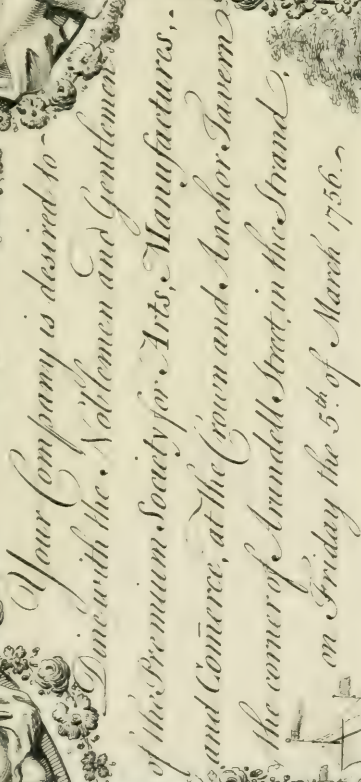 Your Company is desired to
Dine with the Noblemen and Gentlemen
of the Premium Society for Arts, Manufactures,
and Com̄erce, at the Crown and Anchor Tavern
the corner of Arundell Street, in the Strand,
on Friday the 5th of March 1756.